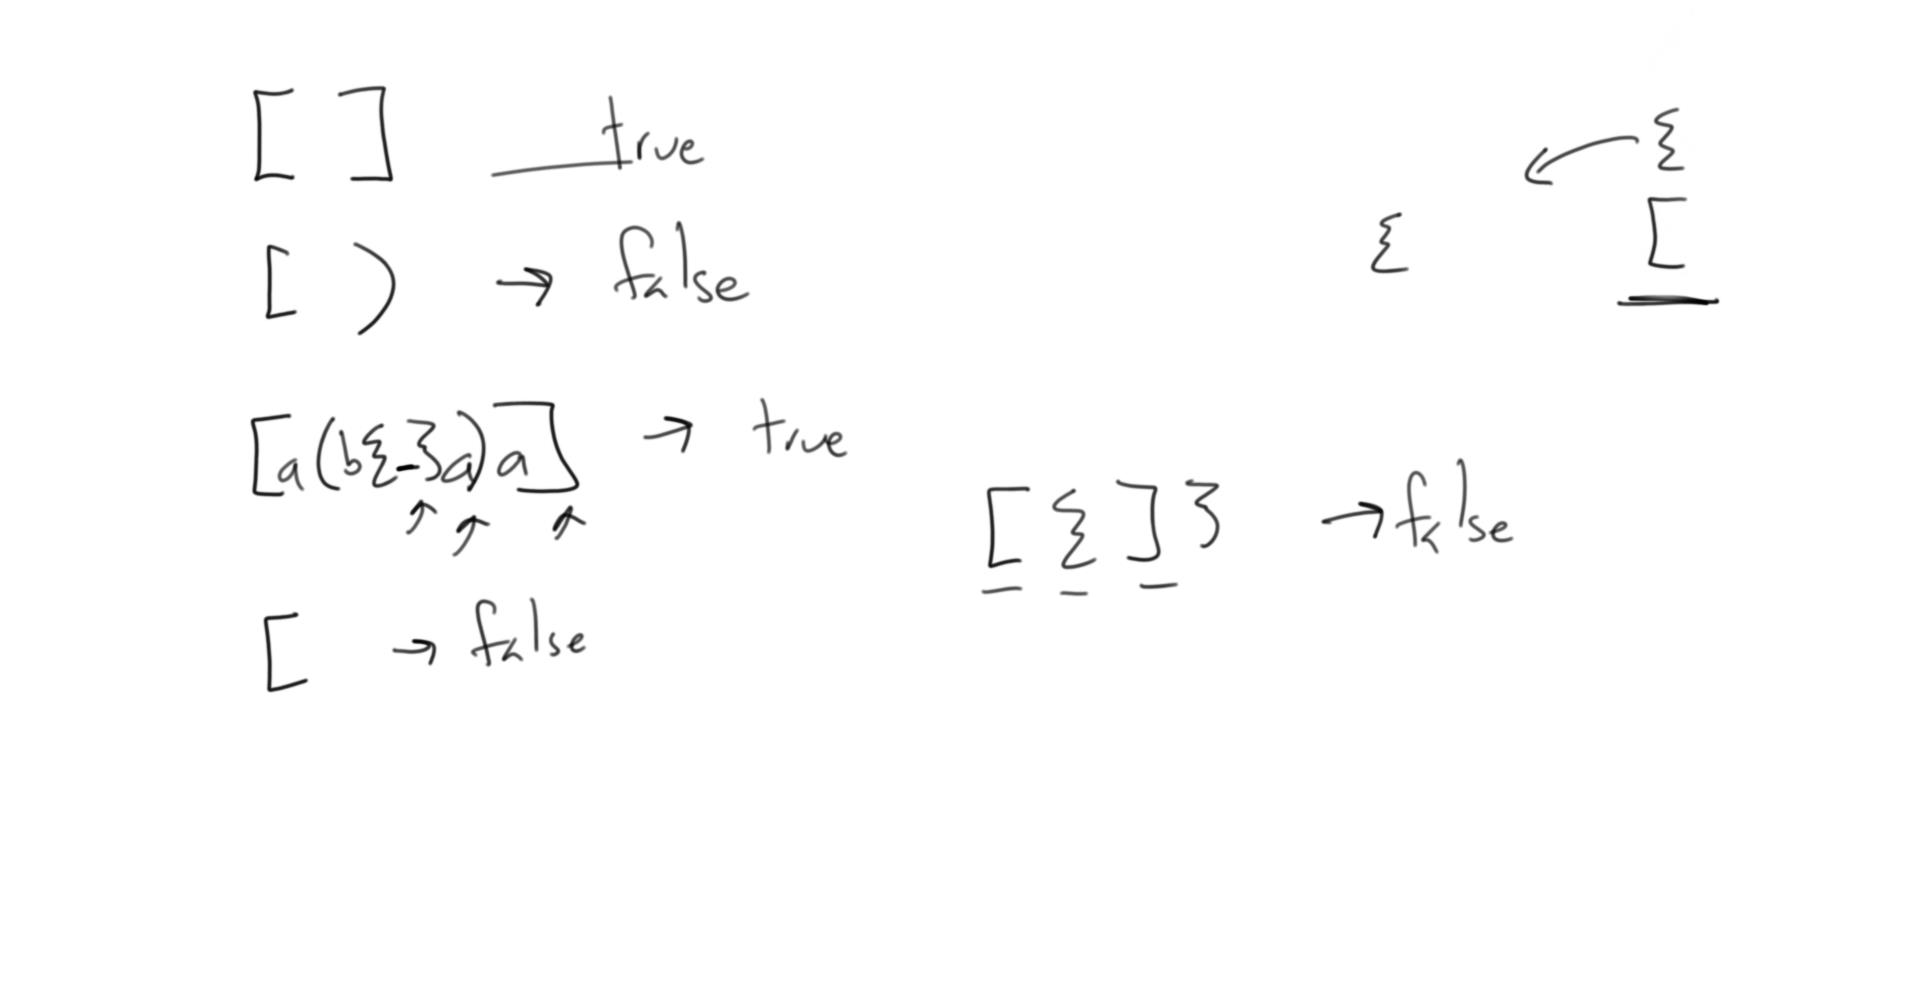 [ ] true
[ ) → false
[a(b{-}a)a] → true
[ → false
{
{ [
[{]} → false